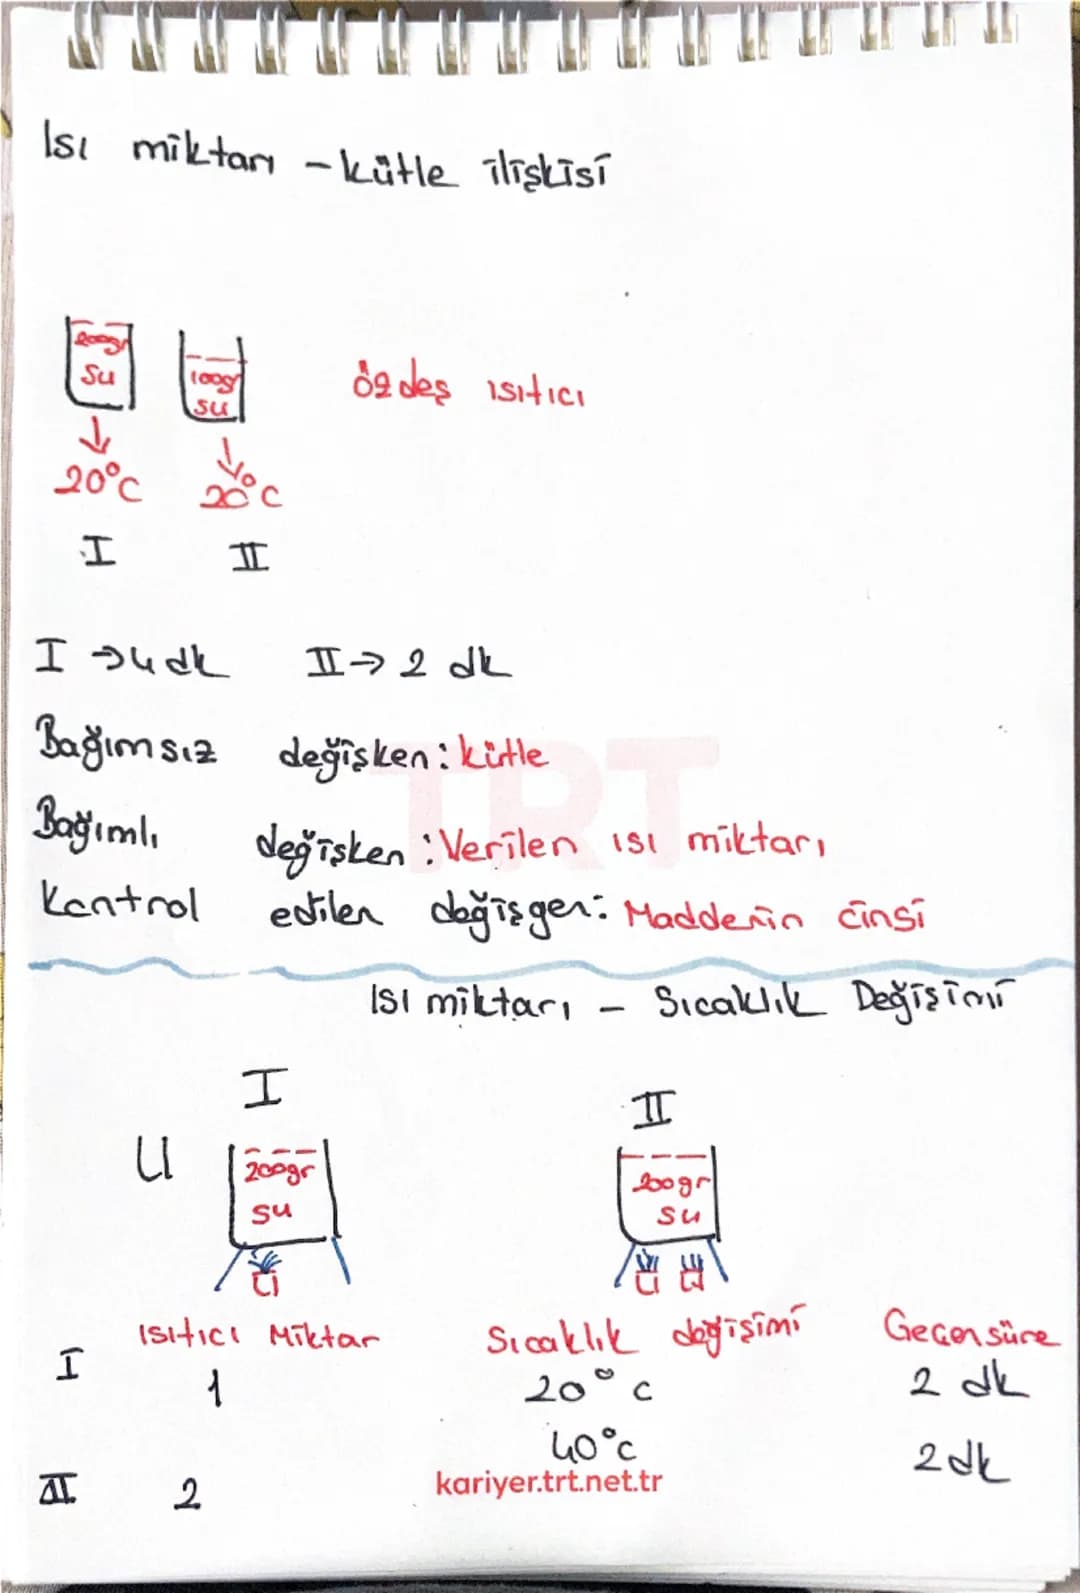 Isı miktarı - kütle ilişkisi
200gr
su
100gr
su
özdeş ısıtıcı
20°C
20°C
I
II
I → 4 dk II → 2 dk
Bağımsız değişken: kütle
Bağımlı değişken: Verilen ısı miktarı
Kontrol edilen değişgen: Maddenin cinsi
TRT
Isı miktarı - Sıcaklık Değişimi
I
II
200gr
su
200gr
su
Isıtıcı Miktar Sıcaklık değişimi Geçen süre
I 1 20°C 2 dk
II 2 40°C 2dk
kariyer.trt.net.tr